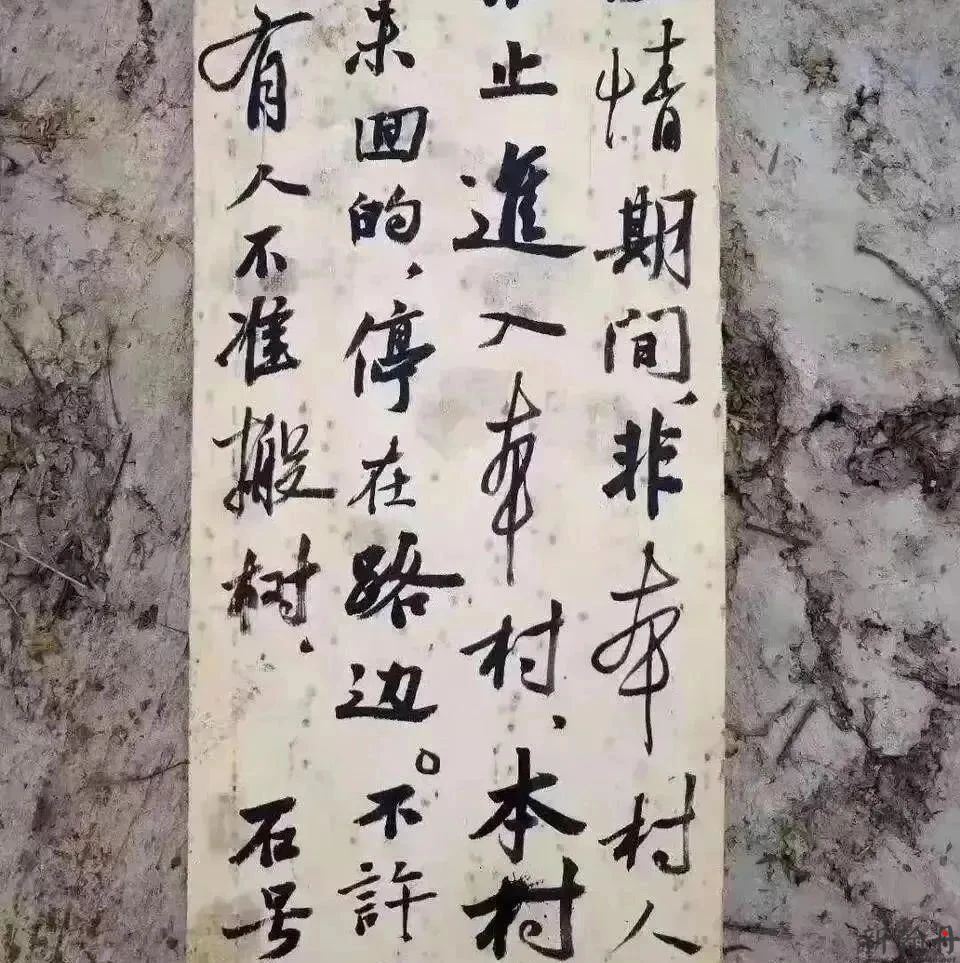 情期间,非本村人
止進入本村、本村
未回的,停在路边。不許
有人不准搬树.石号